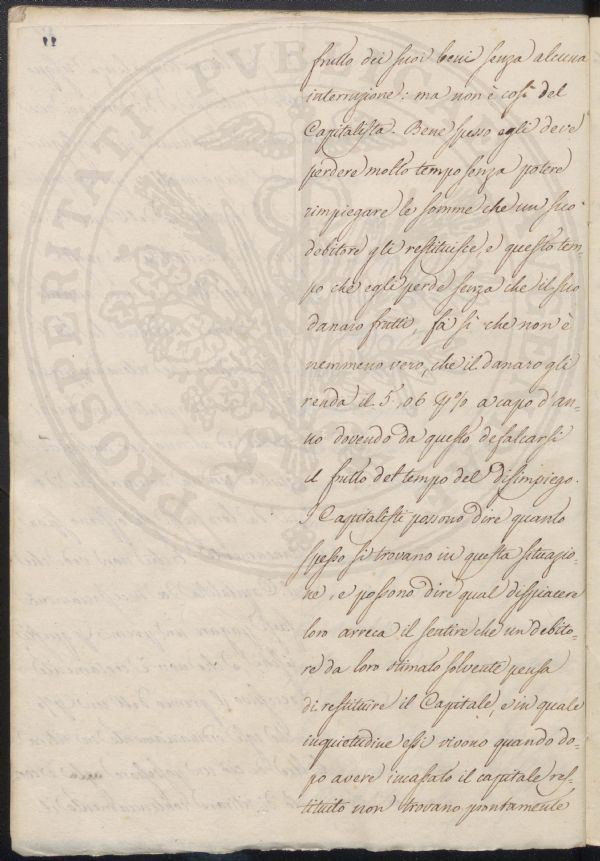 frutto dei suoi beni senza alcuna
interruzione: ma non è così del
Capitalista. Bene spesso egli deve
perdere molto tempo senza potere
rimpiegare le somme che un suo
debitore gli restituisce, e questo tem-
po che egli perde senza che il suo
danaro frutti, fà sì che non è
nemmeno vero, che il danaro gli
renda il 5, o 6 p% a capo d'an-
no dovendo da questo defalcarsi
il frutto del tempo del disimpiego.
I Capitalisti possono dire quanto
spesso si trovano in questa situazio-
ne, e possono dire qual dispiacere
loro arreca il sentire che un debito-
re da loro stimato solvente pensa
di restituire il Capitale, e in quale
inquietudine essi vivono quando do-
po avere incassato il capitale res-
tituito non trovano prontamente
PROSPERITATI PUBLICAE